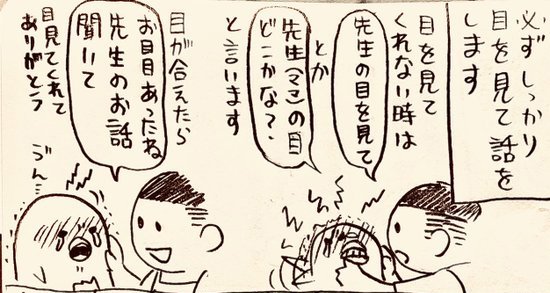 必ずしっかり
目を見て話を
します
目を見て
くれない時は
先生の目を見て
とか
先生(ここ)の目
どこかな?
と言います
目が合えたら
お目目あったね
先生のお話
聞いて
目見てくれて
ありがとう